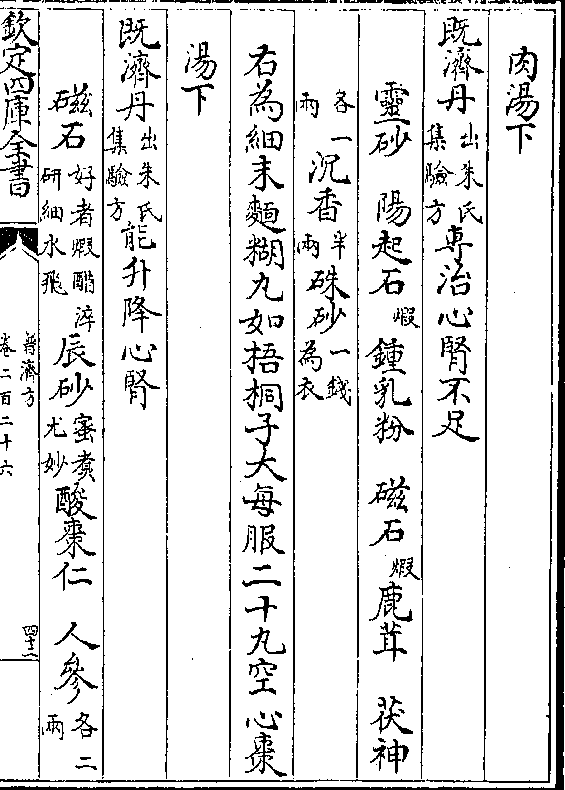 肉湯下
既濟丹出朱氏集驗方專治心腎不足
靈砂 陽起石煅鍾乳粉 磁石煅鹿茸 茯神
各一兩沉香半兩硃砂一錢為衣
右為細末麵糊丸如梧桐子大每服二十丸空心棗
湯下
既濟丹出朱氏集驗方能升降心腎
磁石好者煅醋淬研細水飛辰砂蜜煑尤妙酸棗仁 人參各二兩
欽定四庫全書
普濟方
卷二百二十六
四十二